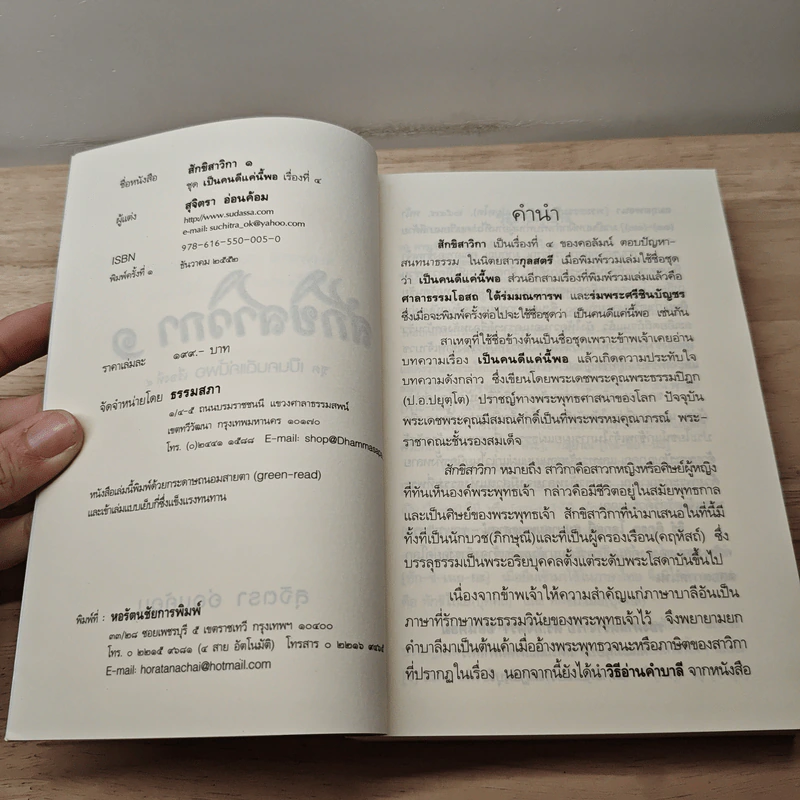 ชื่อหนังสือ สักขิสาวิกา ๑
ชุด เป็นคนดีแค่นี้พอ เรื่องที่ ๔
ผู้แต่ง สุจิตรา อ่อนค้อม
http://www.sudassa.com
e-mail: suchitra_ok@yahoo.com
ISBN 978-616-550-005-0
พิมพ์ครั้งที่ ๑ ธันวาคม ๒๕๕๒
ราคาเล่มละ ๑๙๙.- บาท
จัดจำหน่ายโดย ธรรมสภา
๑/๔-๕ ถนนบรมราชชนนี แขวงศาลาธรรมสพน์
เขตทวีวัฒนา กรุงเทพมหานคร ๑๐๑๗๐
โทร. (๐)๒๔๔๑ ๑๕๘๘ E-mail: shop@Dhammasapa
หนังสือเล่มนี้พิมพ์ด้วยกระดาษถนอมสายตา (green-read)
และเข้าเล่มแบบเย็บกี่ซึ่งแข็งแรงทนทาน
พิมพ์ที่ : หอรัตนชัยการพิมพ์
๓๓/๒๘ ซอยเพชรบุรี ๕ เขตราชเทวี กรุงเทพฯ ๑๐๔๐๐
โทร. ๐ ๒๒๑๕ ๙๖๘๑ (๔ สาย อัตโนมัติ) โทรสาร ๐ ๒๒๑๖
E-mail: horatanachai@hotmail.com
คำนำ
สักขิสาวิกา เป็นเรื่องที่ ๔ ของคอลัมน์ ตอบปัญหา-
สนทนาธรรม ในนิตยสารกุลสตรี เมื่อพิมพ์รวมเล่มใช้ชื่อชุด
ว่า เป็นคนดีแค่นี้พอ ส่วนอีกสามเรื่องที่พิมพ์รวมเล่มแล้วคือ
ศาลาธรรมโอสถ ใต้ร่มมณฑารพ และร่มพระศรีชินบัญชร
ซึ่งเมื่อจะพิมพ์ครั้งต่อไปจะใช้ชื่อชุดว่า เป็นคนดีแค่นี้พอ เช่นกัน
สาเหตุที่ใช้ชื่อข้างต้นเป็นชื่อชุดเพราะข้าพเจ้าเคยอ่าน
บทความเรื่อง เป็นคนดีแค่นี้พอ แล้วเกิดความประทับใจ
บทความดังกล่าว ซึ่งเขียนโดยพระเดชพระคุณพระธรรมปิฎก
(ป.อ.ปยุตฺโต) ปราชญ์ทางพระพุทธศาสนาของโลก ปัจจุบัน
พระเดชพระคุณมีสมณศักดิ์เป็นที่พระพรหมคุณาภรณ์ พระ-
ราชาคณะชั้นรองสมเด็จ
สักขิสาวิกา หมายถึง สาวิกาคือสาวกหญิงหรือศิษย์ผู้หญิง
ที่ทันเห็นองค์พระพุทธเจ้า กล่าวคือมีชีวิตอยู่ในสมัยพุทธกาล
และเป็นศิษย์ของพระพุทธเจ้า สักขิสาวิกาที่นำมาเสนอในที่นี้มี
ทั้งที่เป็นนักบวช(ภิกษุณี)และที่เป็นผู้ครองเรือน(คฤหัสถ์) ซึ่ง
บรรลุธรรมเป็นพระอริยบุคคลตั้งแต่ระดับพระโสดาบันขึ้นไป
เนื่องจากข้าพเจ้าให้ความสำคัญแก่ภาษาบาลีอันเป็น
ภาษาที่รักษาพระธรรมวินัยของพระพุทธเจ้าไว้ จึงพยายามยก
คำบาลีมาเป็นต้นเค้าเมื่ออ้างพระพุทธวจนะหรือภาษิตของสาวิกา
ที่ปรากฏในเรื่อง นอกจากนี้ยังได้นำวิธีอ่านคำบาลี จากหนังสือ